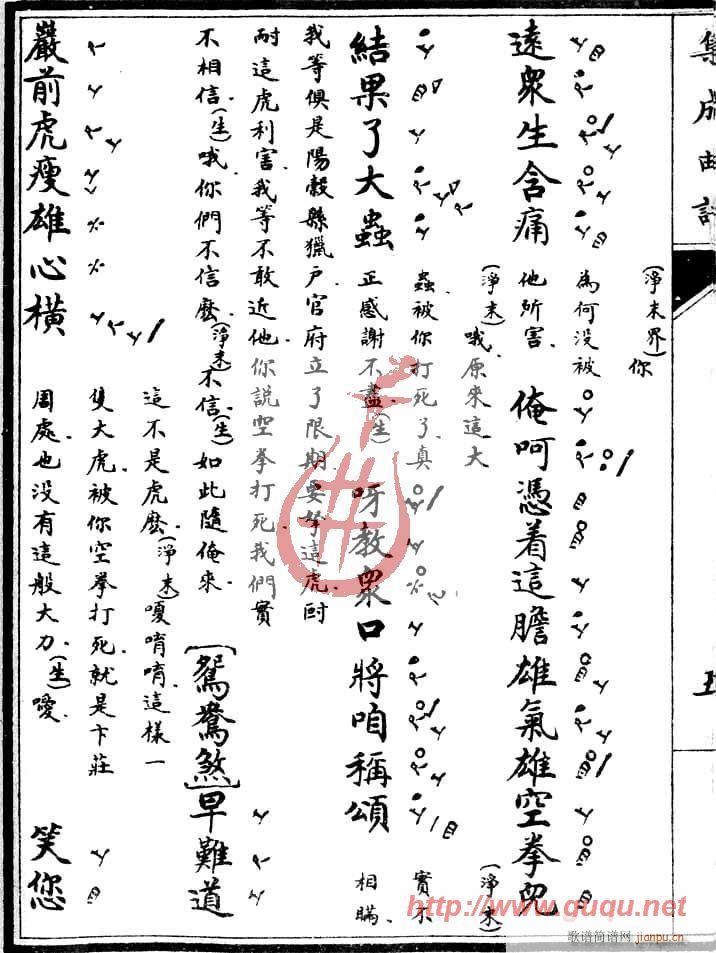 集成曲譜
遠衆生含痛
(淨末界)你
為何没被
他所害
俺呵憑着這膽雄氣雄空拳兒
(淨末)哦原來這大
蟲被你打死了真
正感謝不盡(生)
結果了大蟲
呀教衆口將咱稱頌
(淨末)
實不
相瞞
我等俱是陽穀縣獵户官府立了限期要拏這虎
耐這虎利害我等不敢近他你說空拳打死我們實
不相信(生)哦你們不信麽(淨末)不信(生)如此隨俺來
[鴛鴦煞]早難道
巖前虎瘦雄心橫
這不是虎麽(淨末)嗄唷唷這樣一
隻大虎被你空拳打死就是卞莊
周處也没有這般大力(生)噯
笑您
http://www.guqu.net
歌谱简谱网
jianpu.cn